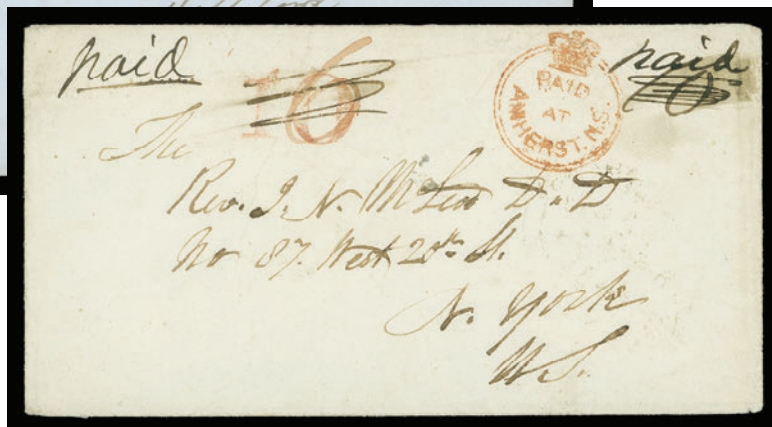 paid
16
PAID
AT
AMHERST. N.S.
paid
The
Rev. J. N. McLeod D. D
No 87. West 20th St.
N. York
U.S.